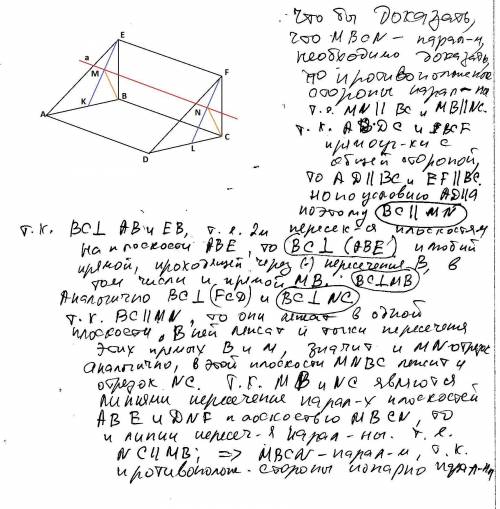 E
a
M
F
B
K
N
A
C
D
L
что бы доказать,
что MBCN - парал-м,
необходимо доказать,
что противоположные
стороны парал-ны
т.е. MN || BC и MB || NC.
т.к. ABDC и EBCF
прямоуг-ки с
общей стороной,
то AD || BC и EF || BC.
но по условию AD || a
поэтому BC || MN
т.к. BC ⊥ AB и EB, т.е. 2м пересек-ся
на плоскости ABE, то BC ⊥ (ABE) и любой
прямой, проходящей через (·) пересечения B, в
том числе и прямой MB. BC ⊥ MB
Аналогично BC ⊥ (FCD) и BC ⊥ NC
т.к. BC || MN, то они лежат в одной
плоскости, в ней лежат и точки пересечения
этих прямых B и M, значит и MN-отрезок
аналогично, в этой плоскости MNBC лежит и
отрезок NC. Т.к. MB и NC являются
линиями пересечения парал-х плоскостей
ABE и DNF плоскостью MBCN, то
и линии пересеч-я парал-ны. т.е.
NC || MB; => MBCN - парал-м, т.к.
противополож. стороны попарно парал-ны